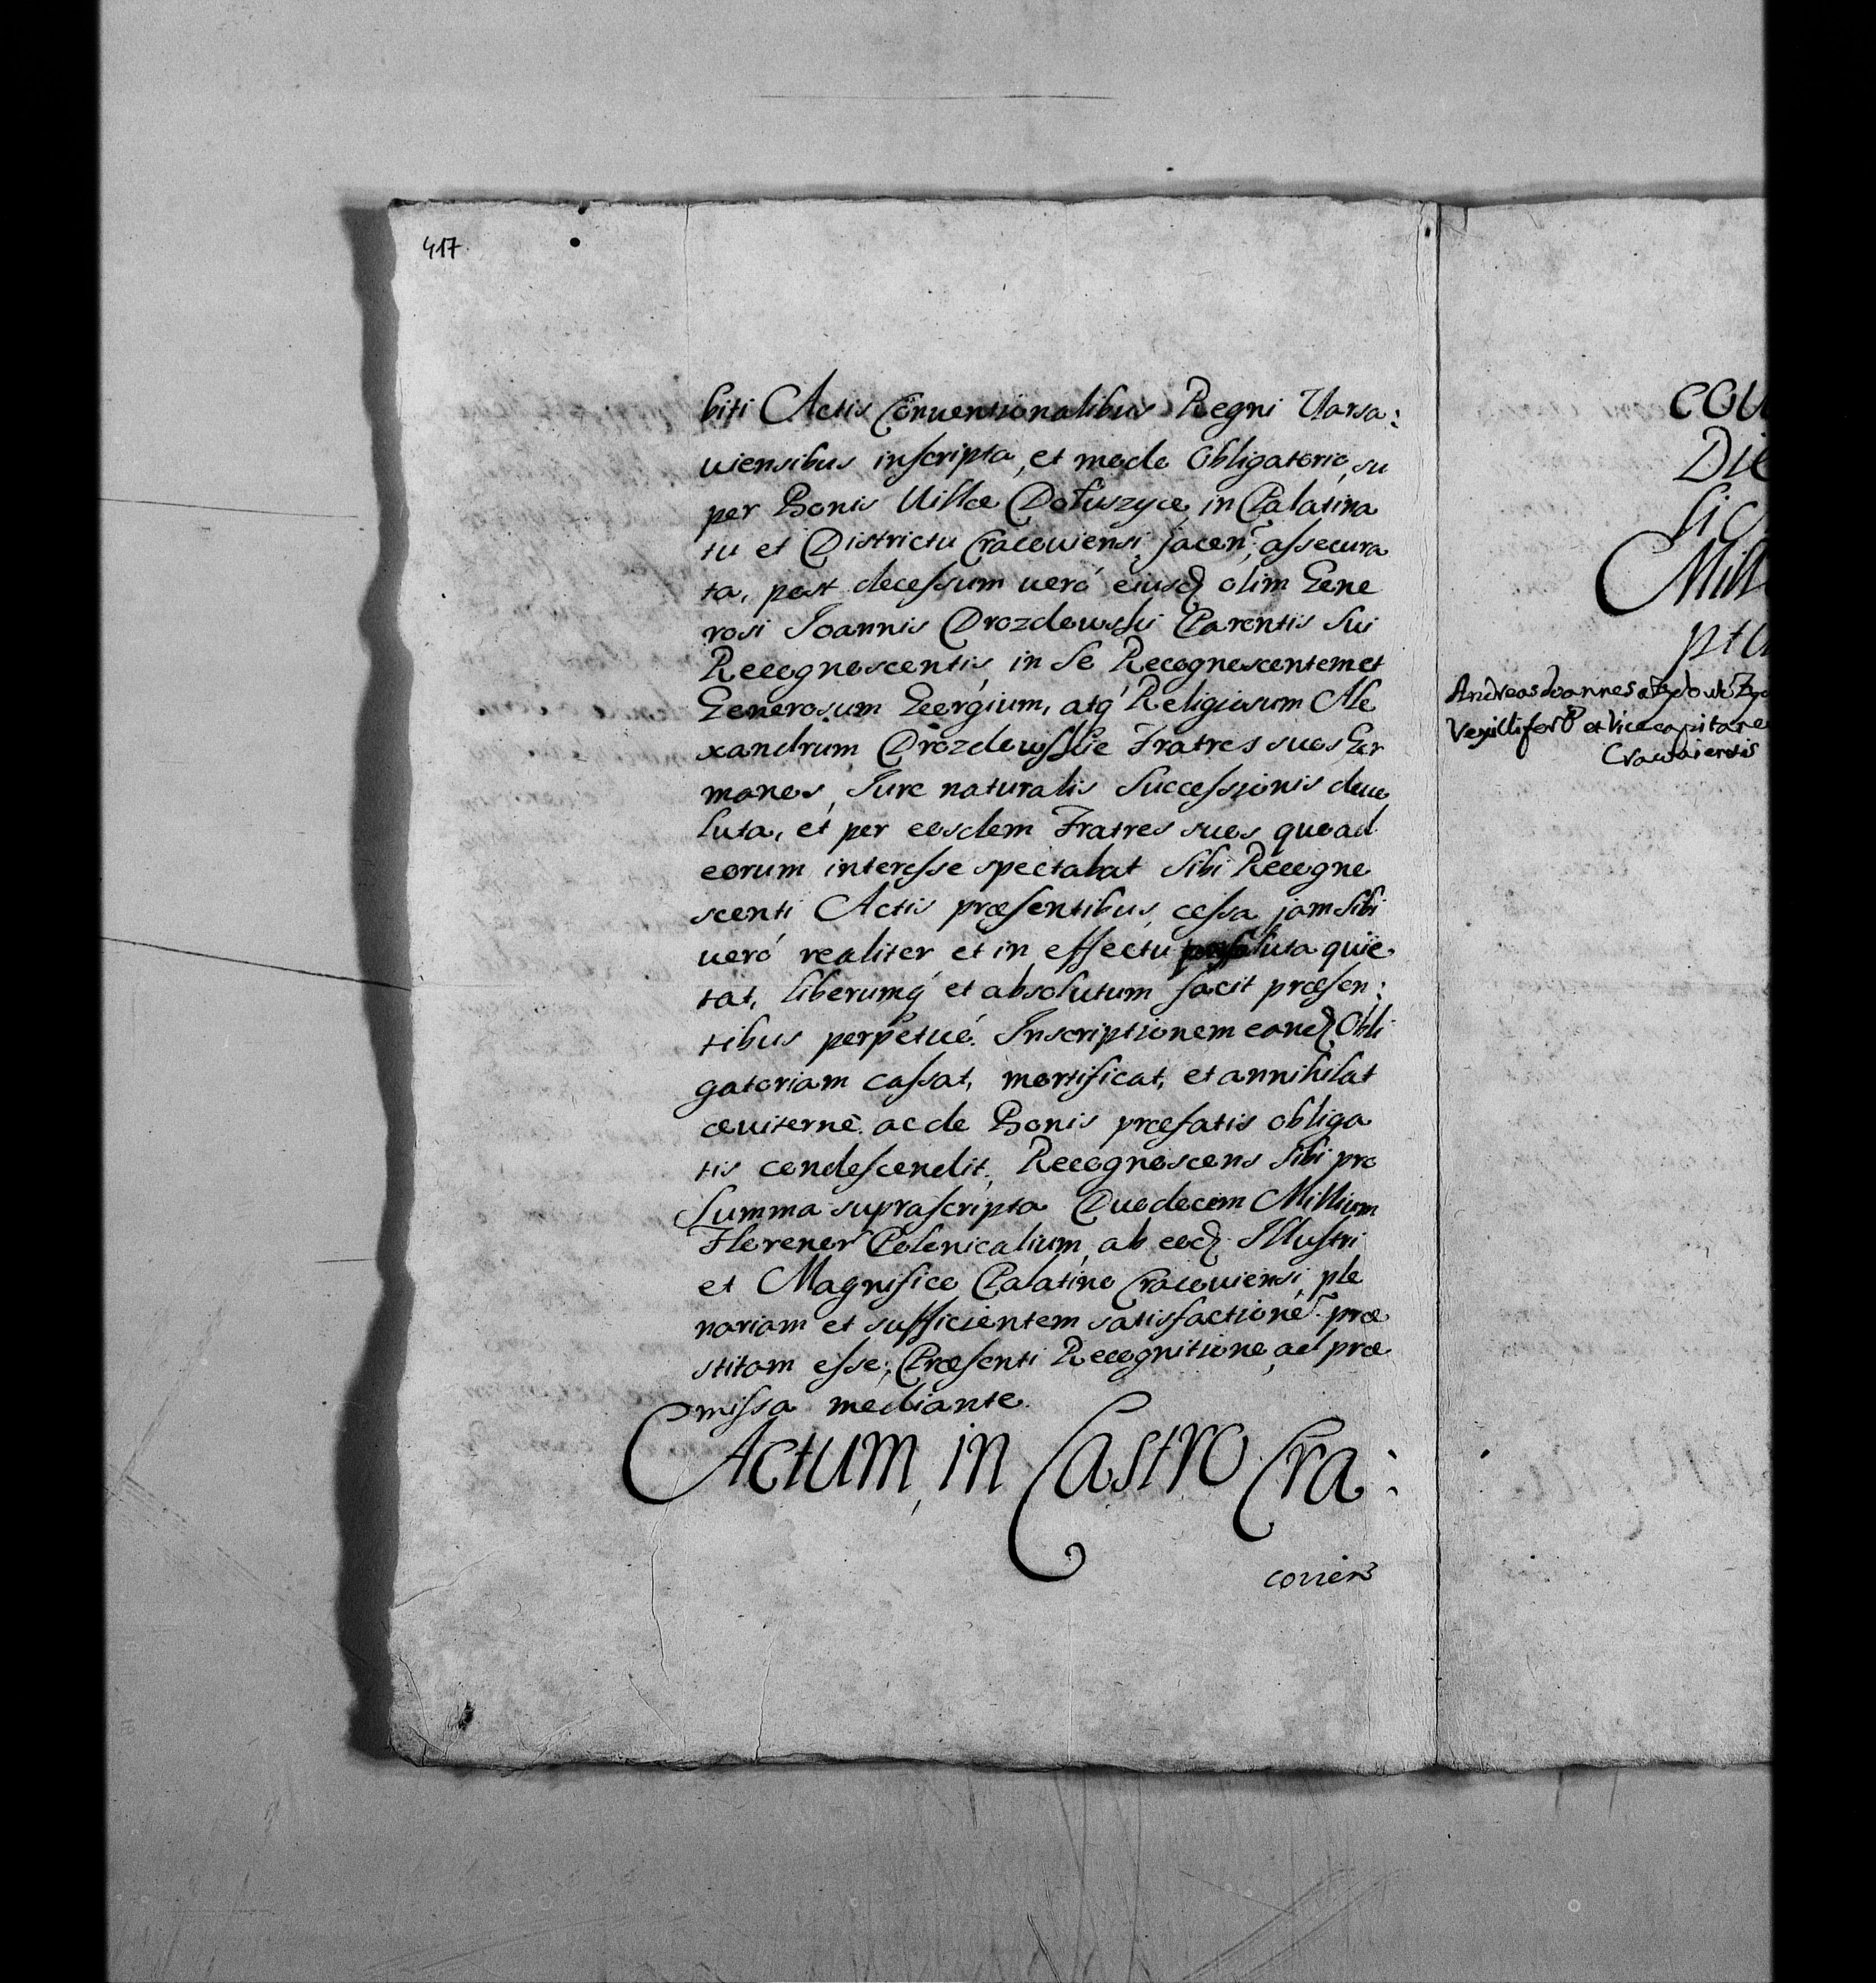 417.
biti Actis Conuentionalibus Regni Varsa:
uiensibus inscripta, et modo Obligatorio, su
per Bonis Villæ Dołuszyce, in Palatina
tu et Districtu Cracouiensi, jacen, assecura
ta, post decessum ueró eiusq olim Gene
rosi Joannis Drozdowski Parentis Sui
Recognoscentis, in Se Recognoscentem et
Generosum Georgium, atq́ Religiosum Ale
xandrum Drozdowskie Fratres suos Ger
manos, Jure naturalis Successionis deuo
luta, et per eosdem Fratres suos quoad
eorum interesse spectabat Sibi Recogno
scenti Actis præsentibus, cessa, jam Sibi
ueró realiter et in effectu persoluta quie
tat, liberumq́ et absolutum facit præsen:
tibus perpetué. Inscriptionem eand Obli
gatoriam cassat, mortificat, et annihilat
æuiterné. ac de Bonis præfatis obliga
tis condescendit, Recognoscens Sibi pro
Summa suprascripta Duodecim Millium
Florenor Polonicalium, ab eod Illustri
et Magnifico Palatino Cracouiensi, ple
nariam et sufficientem satisfactione præ
stitam esse, Præsenti Recognitione, ad præ
missa mediante.
Actum, in Castro Cra:
couien
cou
Die
Mill
Andreas Joannes
Vexillifer et Vicecapitane
Cracouiensis